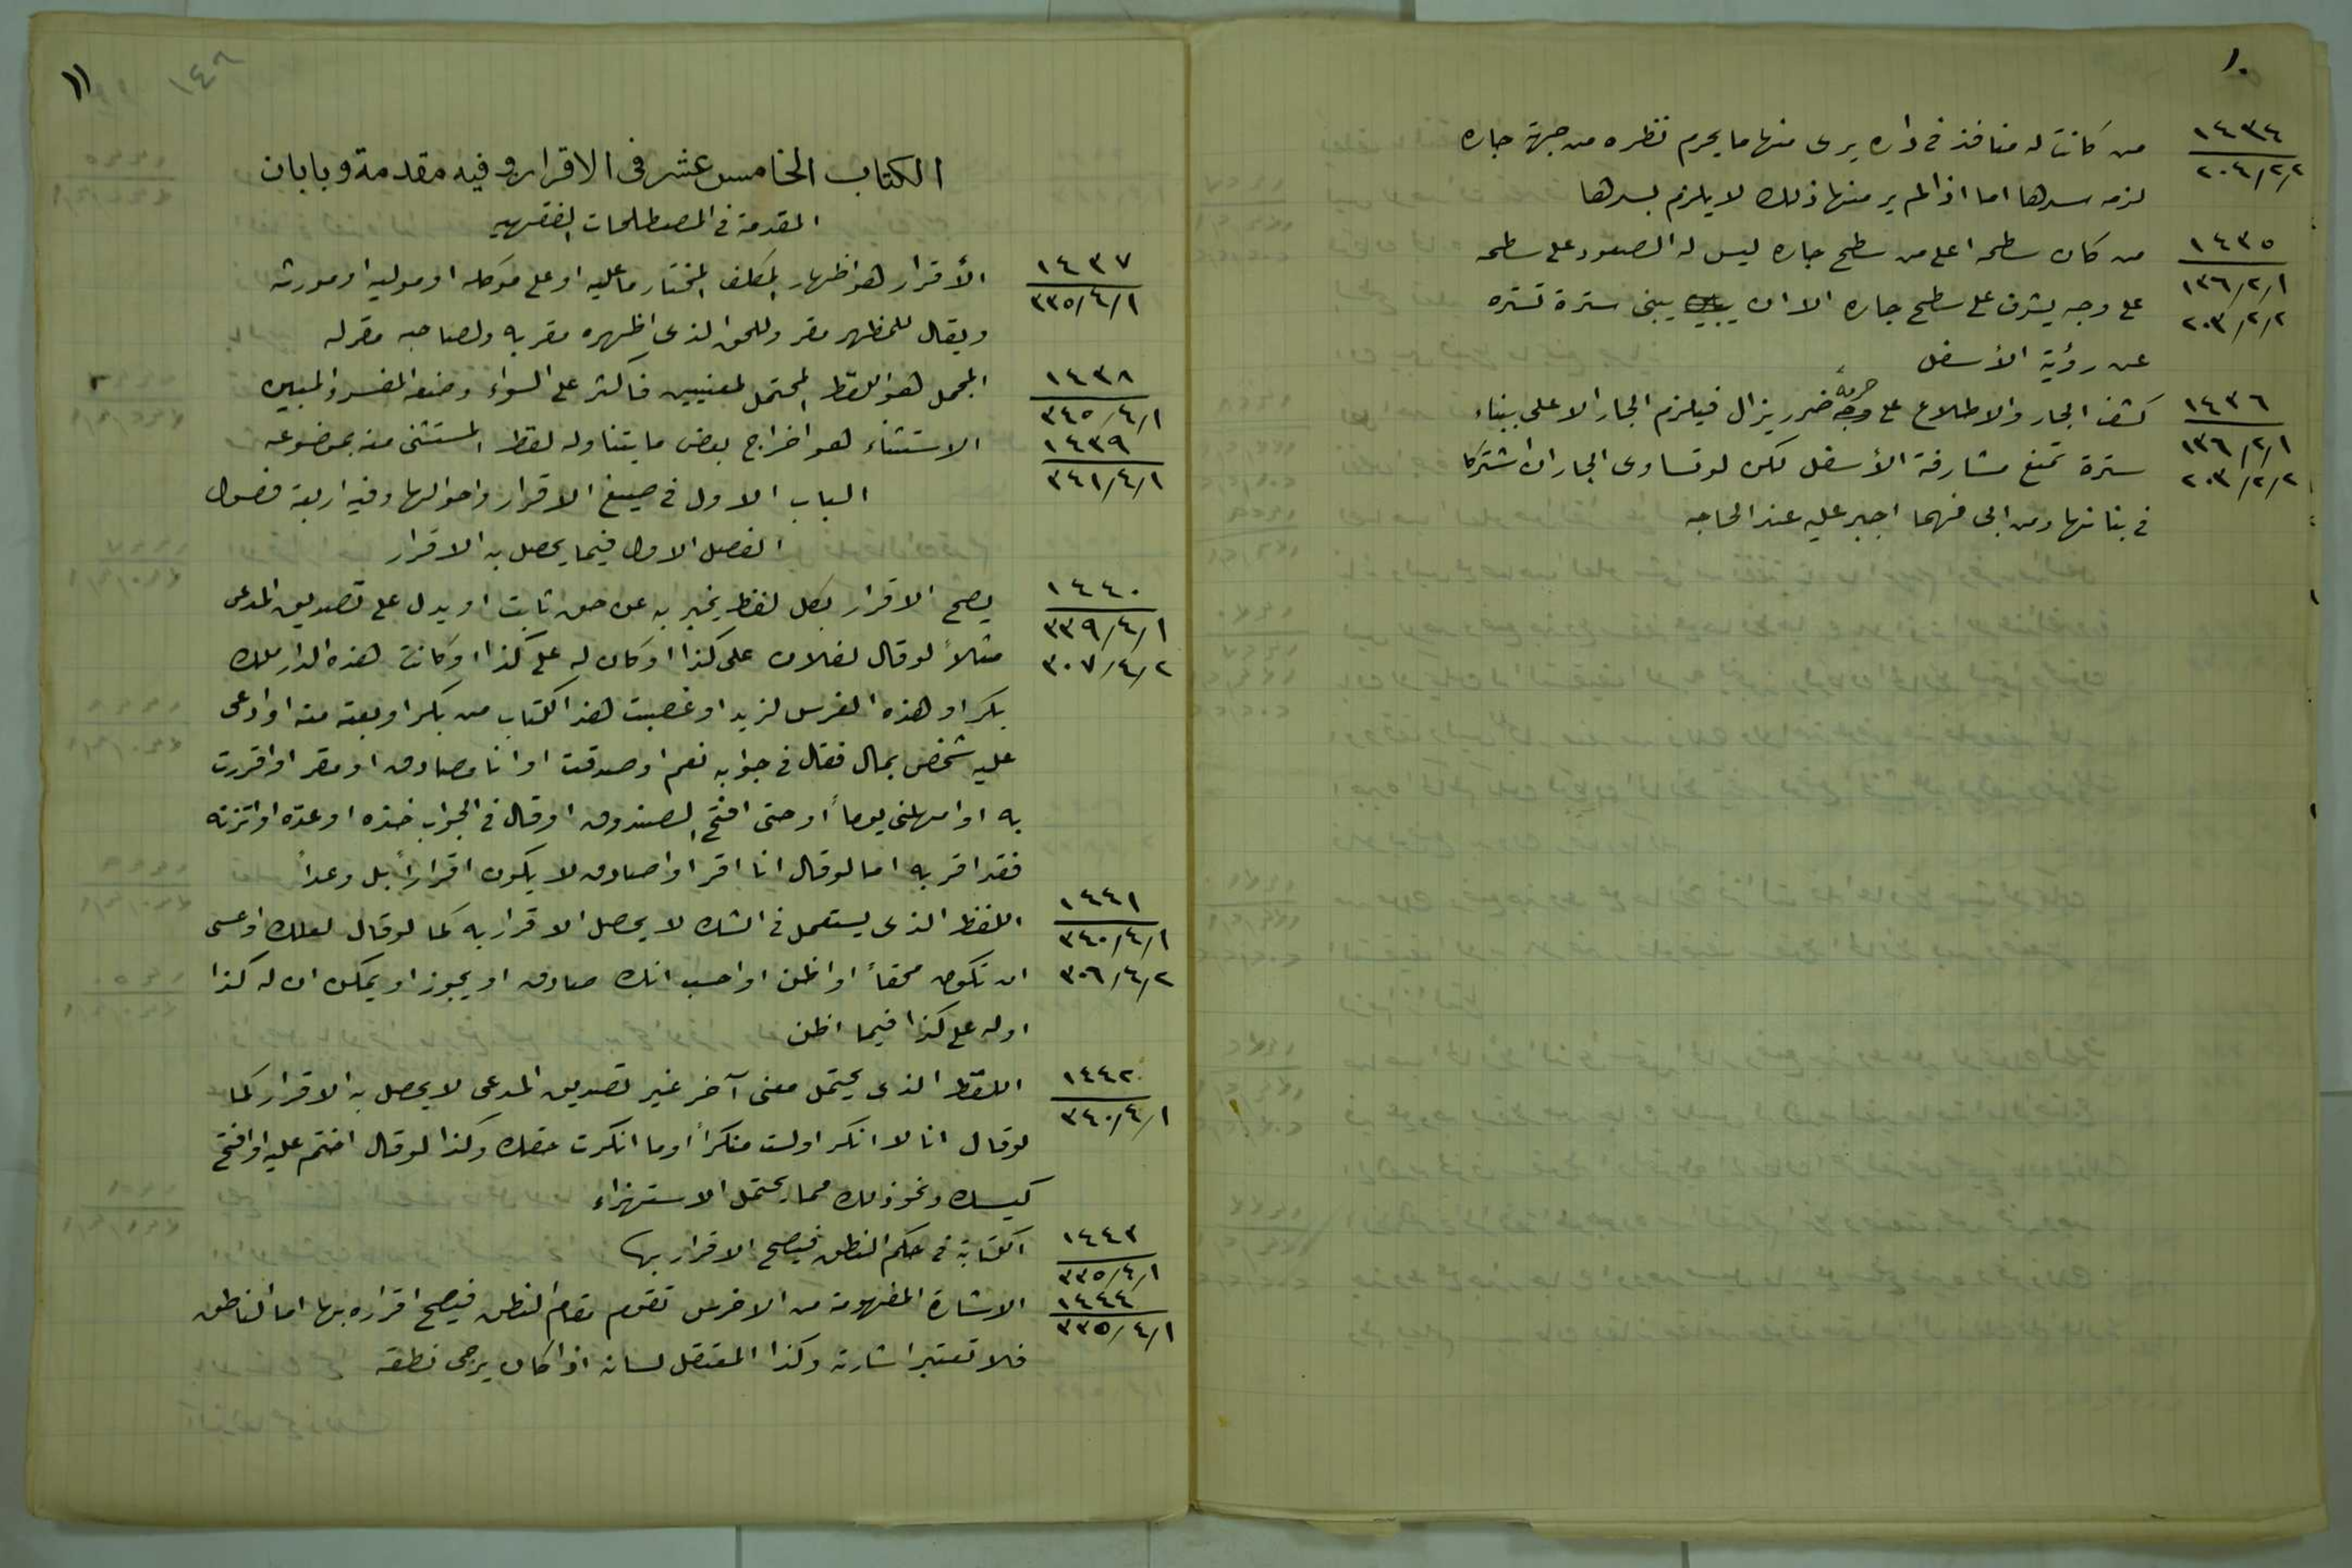 ١٠
١٤٣٤
٢٠٤/٢/٢
من كانت له منافذ في داره يرى منها ما يحرم نظره من جهة جاره
لزمه سدها اما اذا لم ير منها ذلك لا يلزم بسدها
١٤٣٥
١٣٦/٢/١
٢٠٣/٢/٢
من كان سطحه اعلى من سطح جاره ليس له الصعود على سطحه
على وجه يشرف على سطح جاره الا ان يبنى سترة تستره
عن رؤية الأسفل
١٤٣٦
١٣٦/٢/١
٢٠٣/٢/٢
كشف الجار والاطلاع على حرمه ضرر يزال فيلزم الجار الاعلى ببناء
سترة تمنع مشارفة الأسفل لكن لو تساوى الجاران اشتركا
في بنائها ومن ابى منهما اجبر عليه عند الحاجه
١١
١٤٨
الكتاب الخامس عشر في الاقرار وفيه مقدمة وبابان
المقدمة في المصطلحات الفقهيه
١٤٣٧
٣٣٥/٤/١
الأقرار هو اظهار المكلف المختار ما عليه او على موكله او موليه او مورثه
ويقال للمظهر مقر وللحق الذي اظهره مقر به ولصاحبه مقر له
١٤٣٨
٣٤٥/٤/١
المجمل هو اللفظ المحتمل لمعنيين فاكثر على السواء وضده المفسر والمبين
١٤٣٩
٣٤١/٤/١
الاستثناء هو اخراج بعض ما يتناوله لفظ المستثنى منه بموضوعه
الباب الاول في صيغ الاقرار واحوالها وفيه اربعة فصول
الفصل الاول فيما يحصل به الاقرار
١٤٤٠
٣٣٩/٤/١
٣٠٧/٤/٢
يصح الاقرار بكل لفظ يخبر به عن حق ثابت او يدل على تصديق المدعى
مثلاً لو قال لفلان على كذا او كان له على كذا او كانت هذه الدار ملك
بكر او هذه الفرس لزيد او غصبت هذا الكتاب من بكر او بعته منه او ادعى
عليه شخص بمال فقال في جوابه نعم او صدقت او انا مصادق او مقر او اقررت
به او امهلني يوماً او حتى افتح الصندوق او قال في الجواب خذه او عده او اتزنه
فقد اقر به اما لو قال انا اقر او اصادق لا يكون اقراراً بل وعداً
١٤٤١
٣٤٠/٤/١
٣٠٦/٤/٢
اللفظ الذي يستعمل في الشك لا يحصل الاقرار به كما لو قال لعلك او عسى
ان تكون محقاً او اظن او احسب انك صادق او يجوز او يمكن ان له كذا
او له على كذا فيما اظن
١٤٤٢
٣٤٠/٤/١
اللفظ الذي يحتمل معنى آخر غير تصديق المدعى لا يحصل به الاقرار كما
لو قال انا لا انكر او لست منكراً او ما انكرت حقك وكذا لو قال اختم عليه او افتح
كيسك ونحو ذلك مما يحتمل الاستهزاء
١٤٤٣
٣٣٥/٤/١
الكتابة في حكم النطق فيصح الاقرار بها
١٤٤٤
٣٣٥/٤/١
الاشارة المفهومة من الاخرس تقوم مقام النطق فيصح اقراره بها اما الناطق
فلا تعتبر اشارته وكذا المعتقل لسانه اذا كان يرجى نطقه